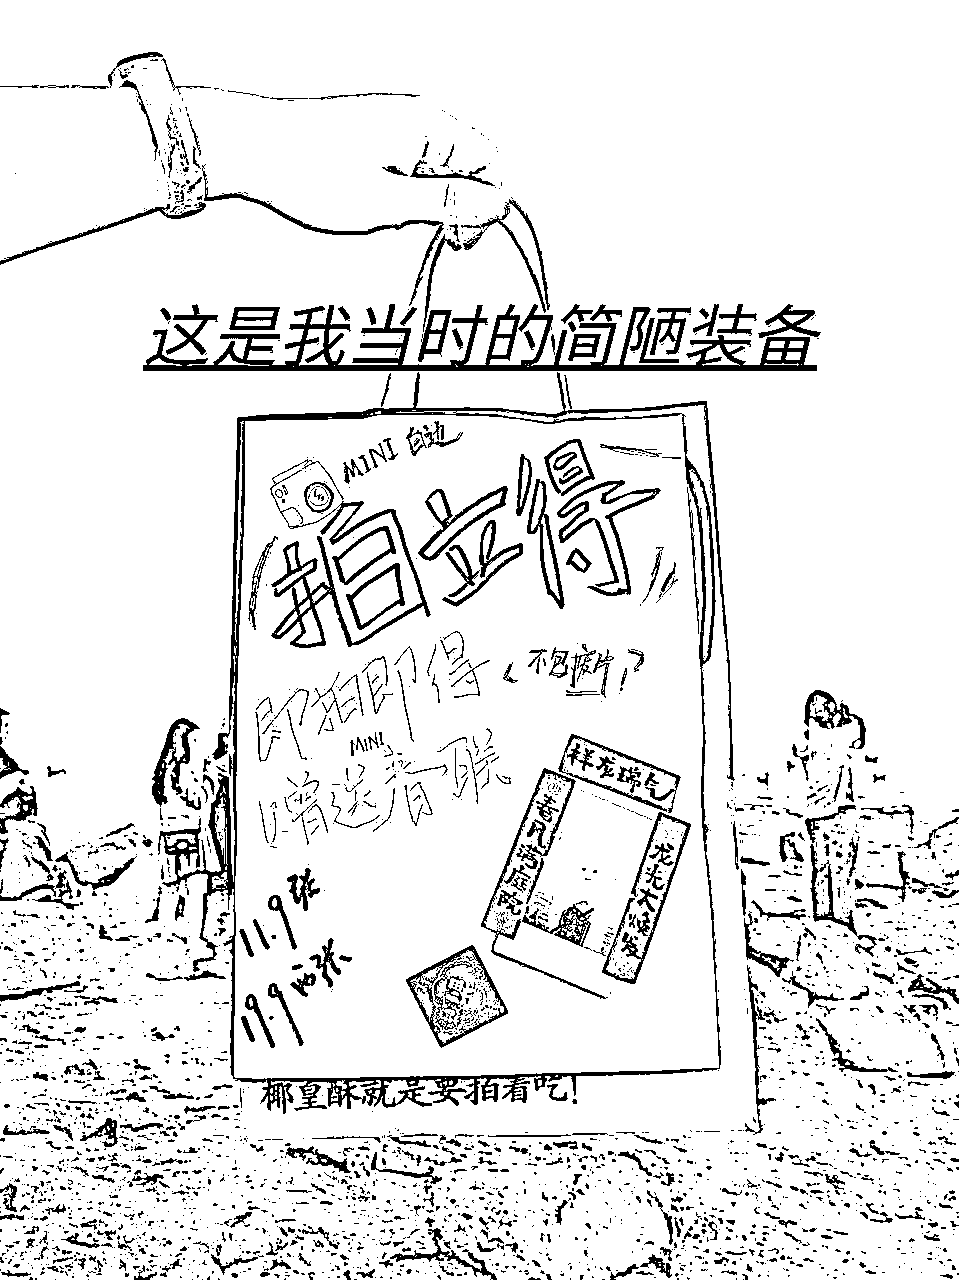 这是我当时的简陋装备
MINI 白边
拍立得
即拍即得
(不包废片)
MINI
赠送春联
祥龙瑞气
春风满庭院
龙光大焕发
11.9张
19.9两张
椰皇酥就是要拍着吃!